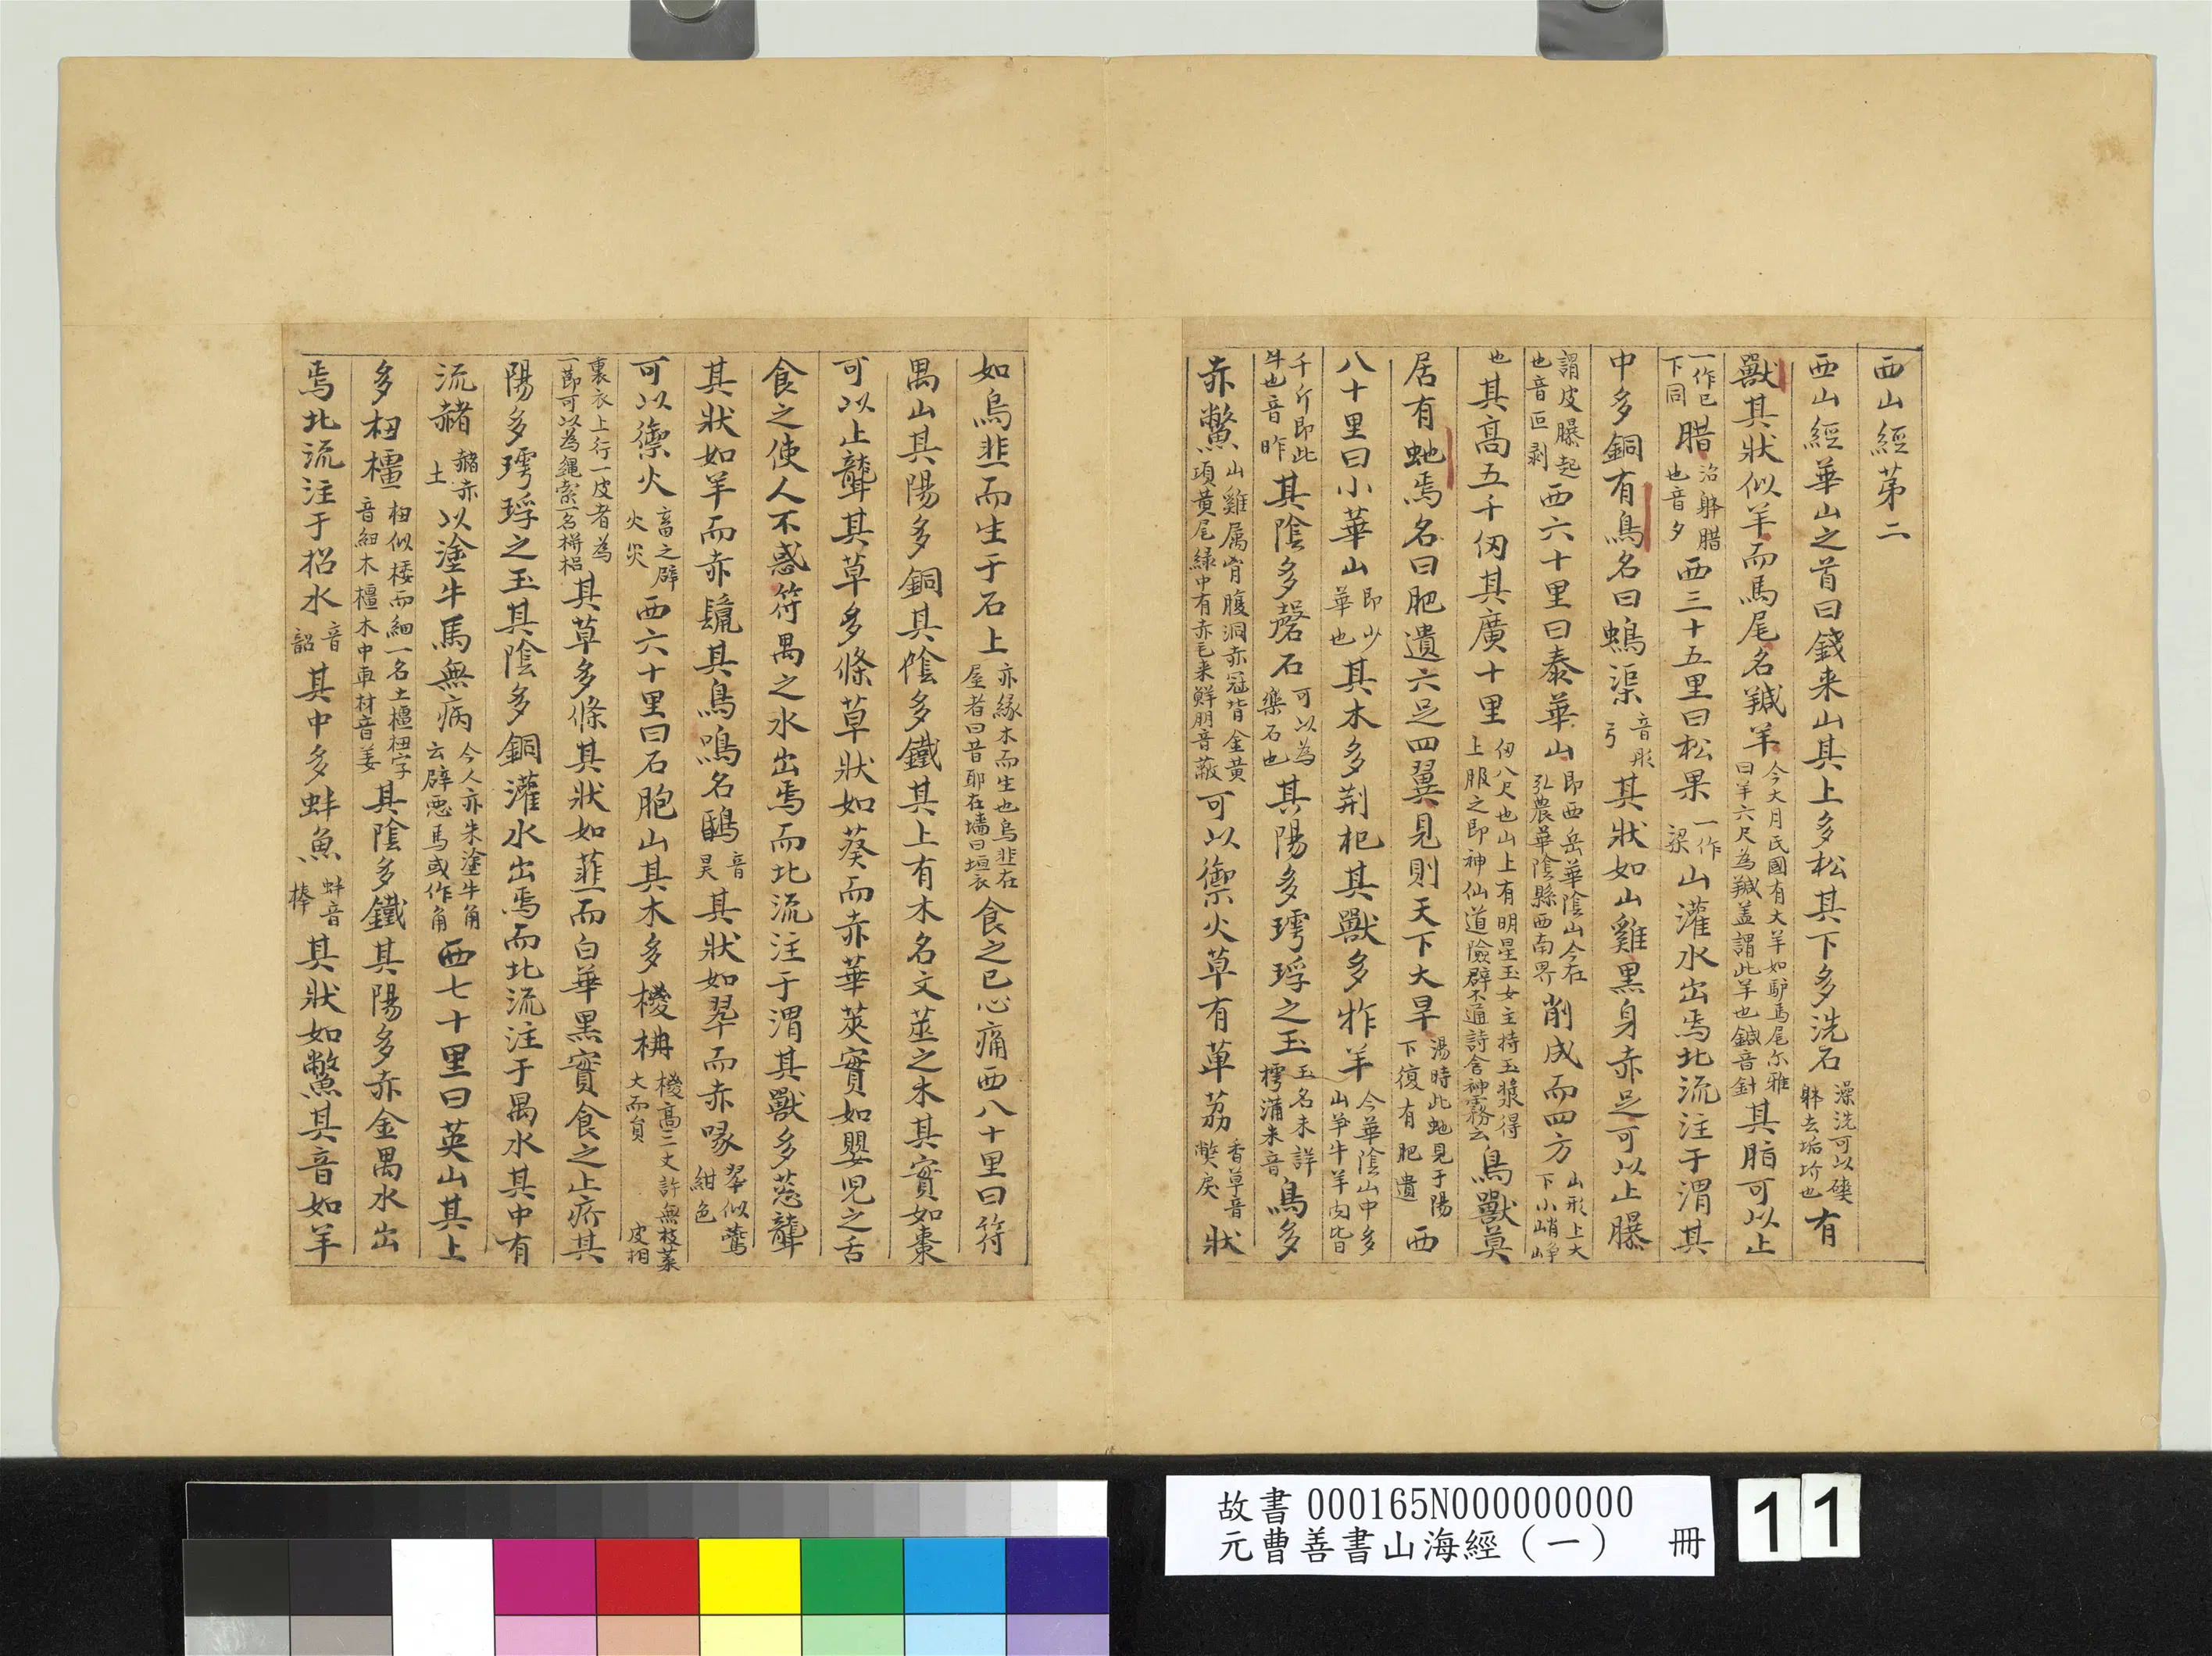 西山經第二
西山經華山之首曰錢来山其上多松其下多洗石澡洗可以磢躰去垢圿也有
獸其狀似羊而馬尾名羬羊今大月民國有大羊如馿馬尾尔雅曰羊六尺為羬盖謂此羊也鍼音針其脂可以止
一作巳下同腊治躰腊也音夕西三十五里曰松果一作梁山灌水出焉北流注于渭其
中多銅有鳥名曰螐渠音彤弓其狀如山雞黑身赤足可以止㬥
謂皮曝起也音叵剥西六十里曰泰華山即西岳華陰山今在弘農華陰縣西南界削成而四方山形上大下小峭崢
也其高五千仞其廣十里仞八尺也山上有明星玉女主持玉漿得上服之即神仙道險僻不通詩含神霧云鳥獸莫
居有虵焉名曰肥遺六足四翼見則天下大旱湯時此虵見于陽下復有肥遺西
八十里曰小華山即少華也其木多荊杞其獸多㸲羊今華陰山中多山羊牛羊肉皆
千斤即此牛也音昨其陰多磬石可以為樂石也其陽多㻬琈之玉玉名未詳樗浦未音鳥多
赤鷩山雞属胷腹洞赤冠背金黄項黄尾緑中有赤毛来鮮明音蔽可以禦火草有萆荔香草音獘戾狀
如烏韭而生于石上亦緣木而生也烏韭在屋者曰昔耶在墻曰垣衣食之已心痛西八十里曰符
禺山其陽多銅其陰多鐵其上有木名文莖之木其實如棗
可以止聾其草多條草狀如葵而赤華莢實如嬰児之舌
食之使人不惑符禺之水出焉而北流注于渭其獸多䓗聾
其狀如羊而赤鬣其鳥鳴名鴖音旻其狀如翠而赤喙翠似鷰紺色
可以禦火畜之辟火灾西六十里曰石脃山其木多椶枏椶高三丈許無枝葉大而員皮相
裹衣上行一皮者為一節可以為繩索一名栟梠其草多條其狀如韮而白華黑實食之止疥其
陽多㻬琈之玉其陰多銅灌水出焉而北流注于禺水其中有
流赭赭赤土以塗牛馬無病今人亦朱塗牛角云辟惡馬或作角西七十里曰英山其上
多杻橿杻似桵而細一名土橿杻字音細木橿木中車材音姜其陰多鐵其陽多赤金禺水出
焉北流注于招水音韶其中多蚌魚蚌音棒其狀如鱉其音如羊
故書000165N000000000
元曹善書山海經（一） 冊
11